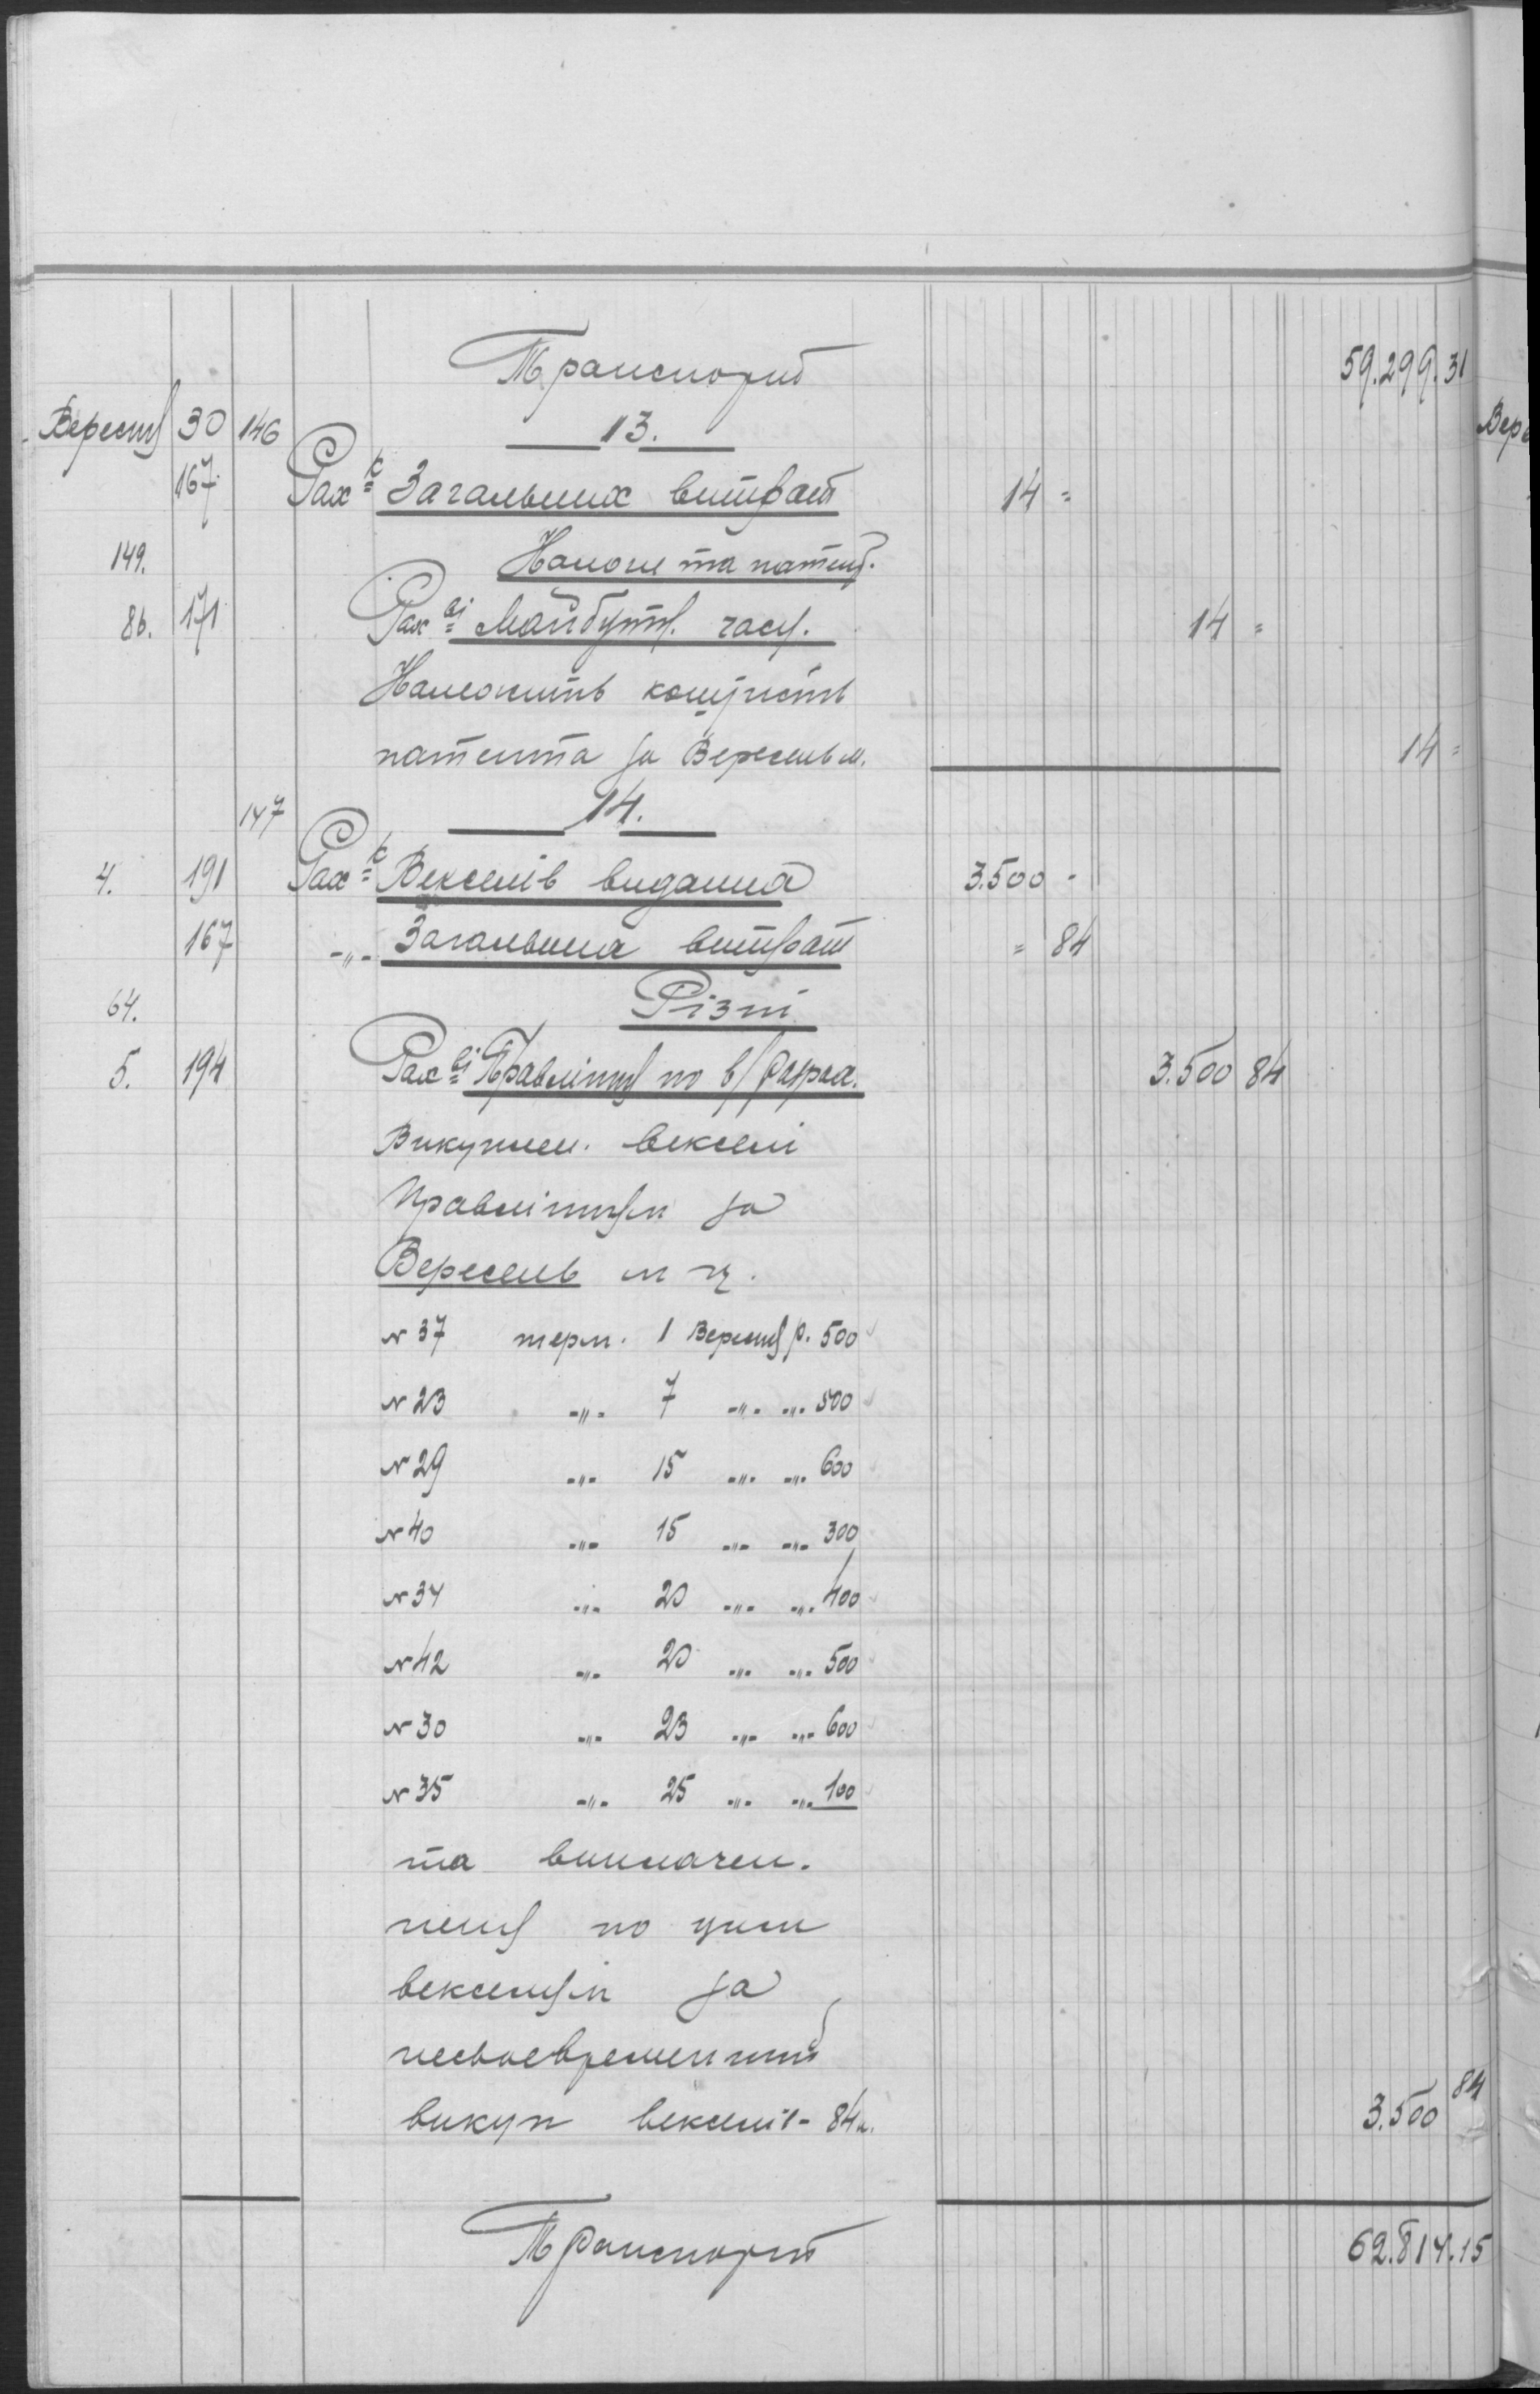 Транспорт 59.299.31
Вересня 30 146 13.
167 Рах-к Загальних витрат 14 =
149. Налоги та патент.
86. 171 Рах-ві Майбутн. часу. 14 =
Належить
патента за Вересень м. 14 =
147 14.
4. 191 Рах-к Векселів видання 3.500 -
167 -„- Загальних витрат = 84
64. Різні
5. 194 Рах-ві Правління по в/ 3.500 84
Викуплен. векселі
Правлінням за
Вересень м ц.
№ 37 терм. 1 Вересня р. 500
№ 23 -„- 7 -„- -„- 500
№ 29 -„- 15 -„- -„- 600
№ 40 -„- 15 -„- -„- 300
№ 34 -„- 20 -„- -„- 400
№ 42 -„- 20 -„- -„- 500
№ 30 -„- 23 -„- -„- 600
№ 35 -„- 25 -„- -„- 100
та виплачен.
пеня по цим
векселям за
несвоевременний
викуп векселів - 84 к. 3.500 84
Транспорт 62.814.15